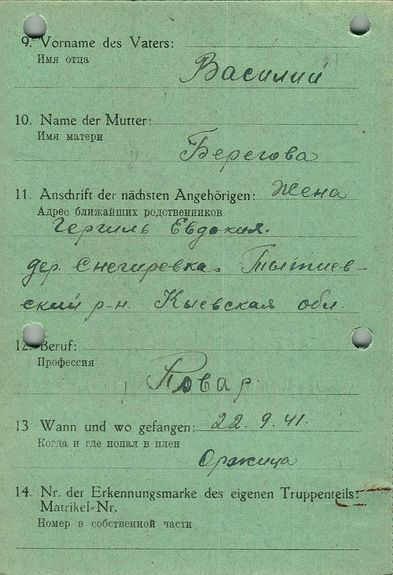 9. Vorname des Vaters:
Имя отца
Василий
10. Name der Mutter:
Имя матери
Берегова
11. Anschrift der nächsten Angehörigen: Жена
Адрес ближайших родственников
Гергиль Евдокия.
дер. Снегиревка Тытиев-
ский р-н. Кыевская обл.
12. Beruf:
Профессия
Повар
13 Wann und wo gefangen: 22. 9. 41.
Когда и где попал в плен
Оржица
14. Nr. der Erkennungsmarke des eigenen Truppenteils:
Matrikel-Nr.
Номер в собственной части